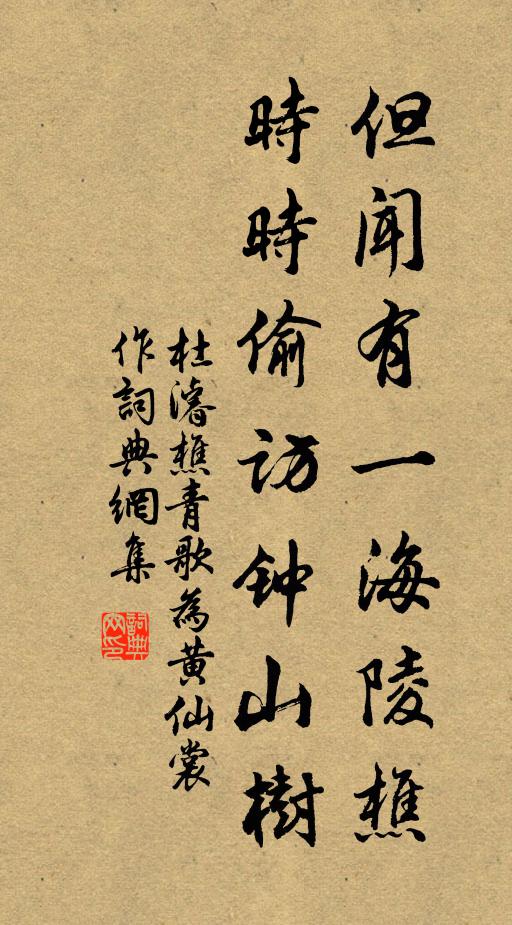 但聞有一海陵樵
時時偷訪钟山樹
杜濬樵青歌為黄仙裳
作詞典網集
詞典網印